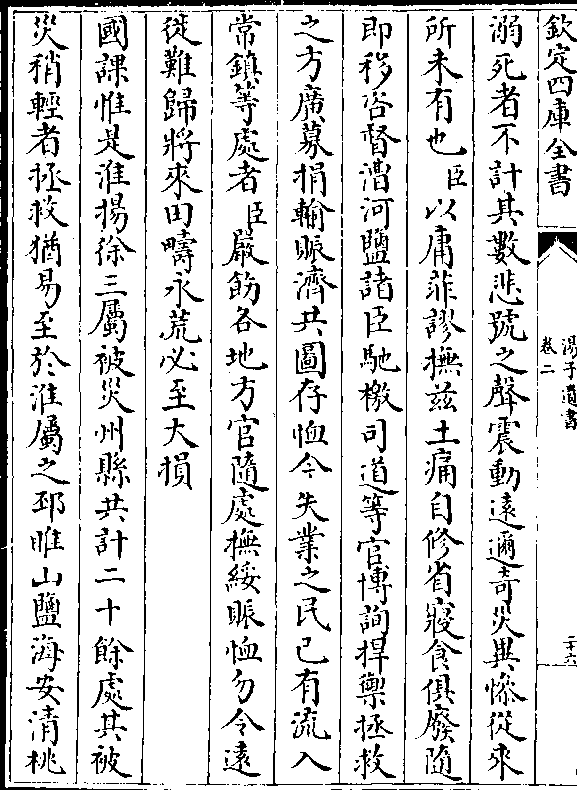 欽定四庫全書
湯子遺書
卷二
二十六
溺死者不計其數悲號之聲震動遠邇奇災異慘從來
所未有也臣以庸菲謬撫兹土痛自修省寢食俱廢隨
即移咨督漕河鹽諸臣馳檄司道等官博詢捍禦拯救
之方廣募捐輸賑濟共圖存恤今失業之民已有流入
常鎮等處者臣嚴飭各地方官隨處撫綏賑恤勿令遠
徙難歸將來田疇永荒必至大損
國課惟是淮揚徐三屬被災州縣共計二十餘處其被
災稍輕者拯救猶易至於淮屬之邳睢山鹽海安清桃